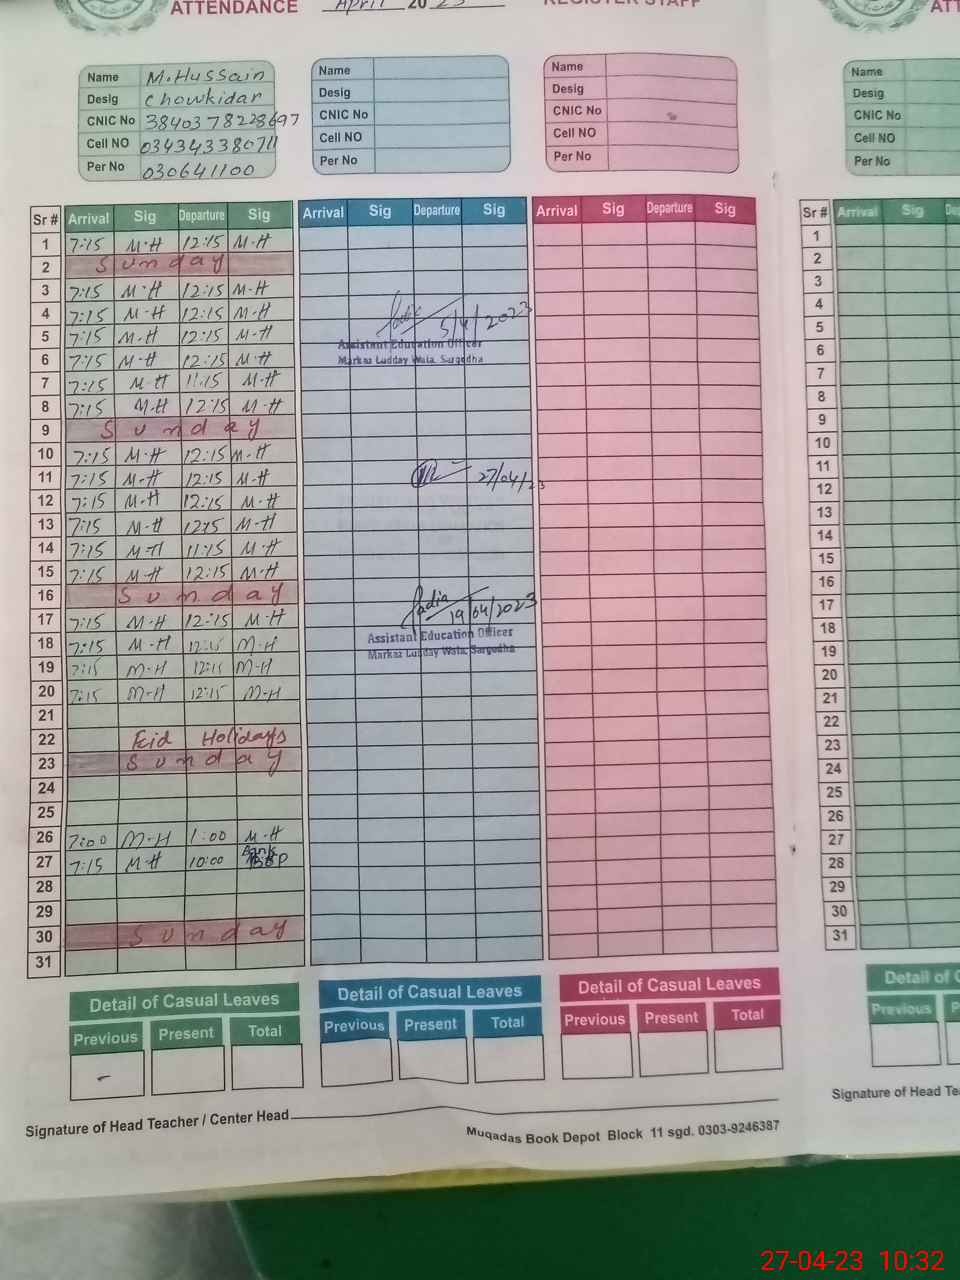 ATTENDANCE April 20 23 REGISTER STAFF
Name M.Hussain
Desig Chowkidar
CNIC No 3840378228697
Cell NO 034343380711
Per No 030641100
Name
Desig
CNIC No
Cell NO
Per No
Name
Desig
CNIC No
Cell NO
Per No
Name
Desig
CNIC No
Cell NO
Per No
Sr # Arrival Sig Departure Sig Arrival Sig Departure Sig Arrival Sig Departure Sig Sr # Arrival Sig
1 7:15 M-H 12:15 M-H 1
2 Sunday 2
3 7:15 M-H 12:15 M-H 3
4 7:15 M-H 12:15 M-H 4
5 7:15 M-H 12:15 M-H 5
6 7:15 M-H 12:15 M-H 6
7 7:15 M-H 11:15 M-H 7
8 7:15 M-H 12:15 M-H 8
9 Sunday 9
10 7:15 M-H 12:15 M-H 10
11 7:15 M-H 12:15 M-H 11
12 7:15 M-H 12:15 M-H 12
13 7:15 M-H 12:15 M-H 13
14 7:15 M-H 11:15 M-H 14
15 7:15 M-H 12:15 M-H 15
16 Sunday 16
17 7:15 M-H 12:15 M-H 17
18 7:15 M-H 12:15 M-H 18
19 7:15 M-H 12:15 M-H 19
20 7:15 M-H 12:15 M-H 20
21 21
22 Eid Holidays 22
23 Sunday 23
24 24
25 25
26 7:00 M-H 1:00 M-H 26
27 7:15 M-H 10:00 Bank 27
28 28
29 29
30 Sunday 30
31 31
Sadia 5/4/2023
Assistant Education Officer
Markaz Ludday Wala, Sargodha
27/04/23
Sadia 19/04/2023
Assistant Education Officer
Markaz Ludday Wala, Sargodha
Detail of Casual Leaves
Previous Present Total
-
Detail of Casual Leaves
Previous Present Total
Detail of Casual Leaves
Previous Present Total
Detail of
Previous
Signature of Head Teacher / Center Head
Muqadas Book Depot Block 11 sgd. 0303-9246387
Signature of Head
27-04-23 10:32